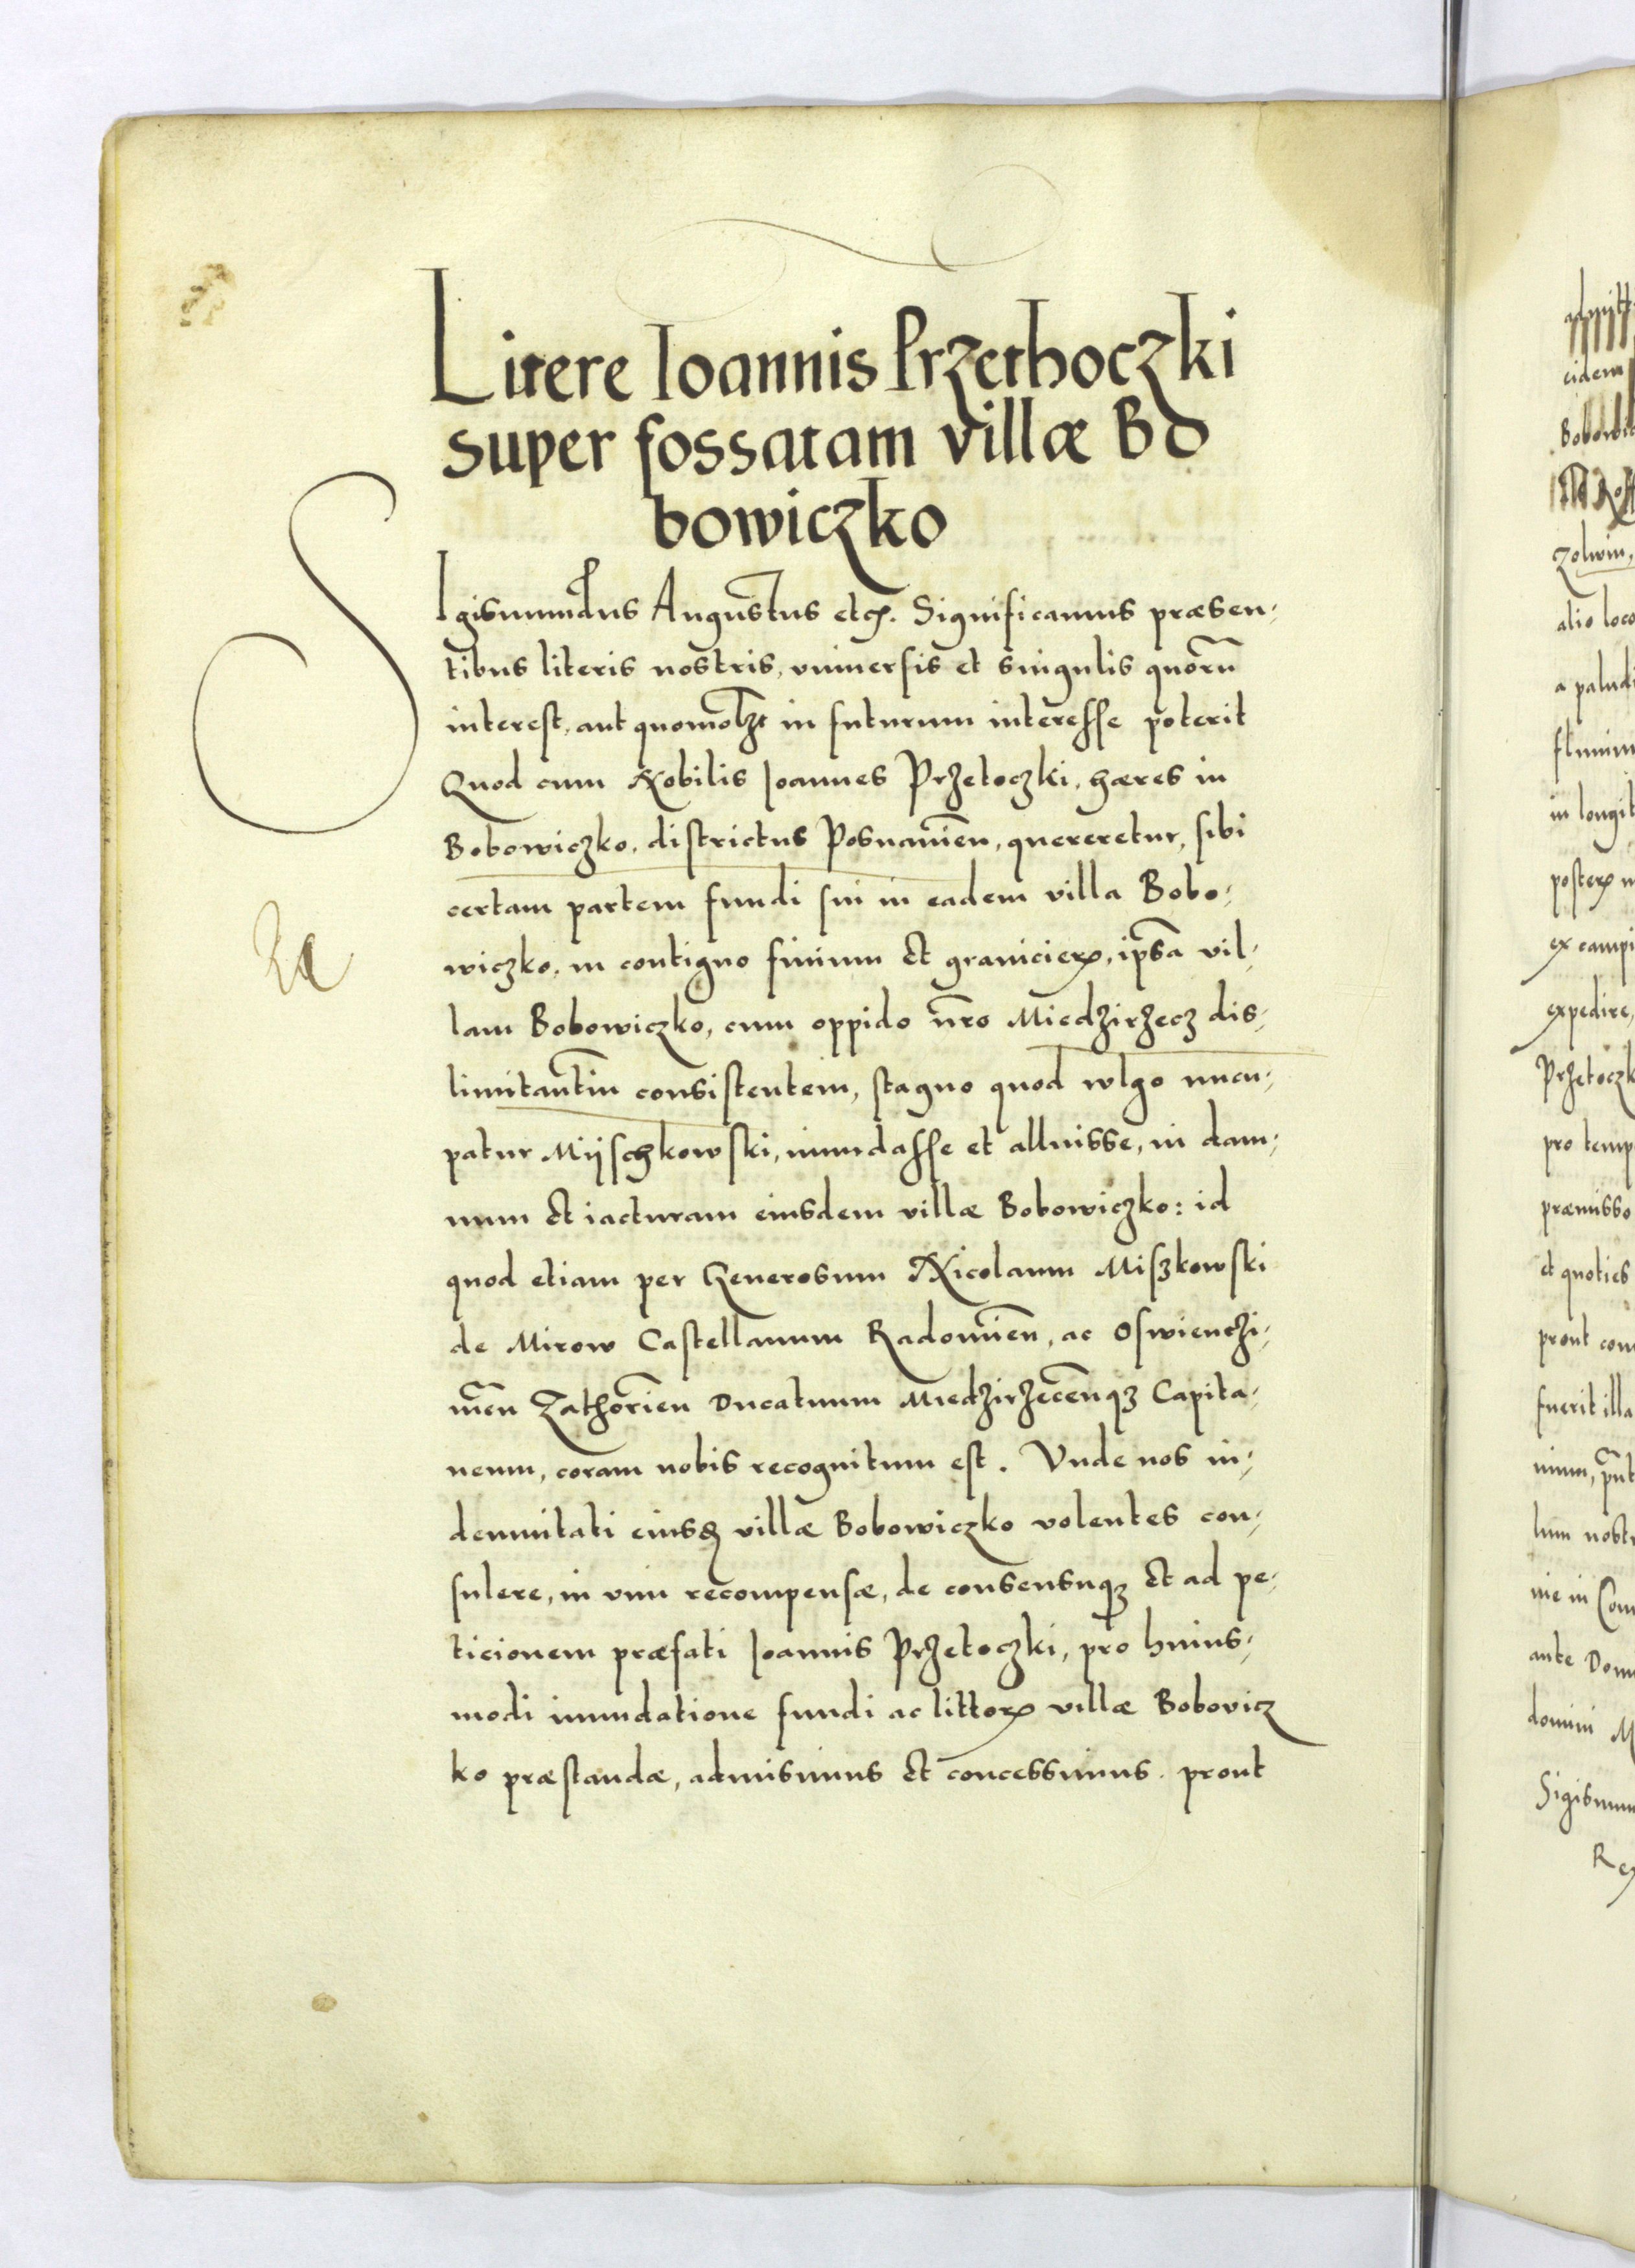 Litere Ioannis Przethoczki
super fossatam villæ Bo
bowiczko
SIgismundus Augustus etc. Significamus præsen-
tibus literis nostris, vniuersis et singulis quorũ
interest, aut quomolꝫt in futurum interesse poterit
Quod cum Nobilis Ioannes Przetoczki, hæres in
Bobowiczko, districtus Posnanieñ, quereretur, sibi
certam partem fundi sui in eadem villa Bobo-
wiczko, in contiguo finium et granicierꝝ, ipsã vil-
lam Bobowiczko, cum oppido nr̃o Miedzirzecz dis-
limitantiũ consistentem, stagno quod wlgo nuncu-
patur Mijschkowski, inundasse et alluisse, in dam-
num et iacturam eiusdem villæ Bobowiczko: id
quod etiam per Generosum Nicolaum Miszkowski
de Mirow Castellanum Radomieñ, ac Oswienczi-
meñ Zathorieñ Ducatuum Miedzirzeceñqꝫ Capita-
neum, coram nobis recognitum est. Vnde nos in-
demnitati eiusđ villæ Bobowiczko volentes con-
sulere, in vim recompensæ, de consensuqꝫ et ad pe-
ticionem præfati Ioannis Przetoczki, pro huius-
modi inundatione fundi ac littorꝝ villæ Bobovicz
ko præstandæ, admisimus et concessimus. prout
eidem
zolwin,
alio loco
a paludi
in longit
posterꝝ
ex campi
expedire,
Przetoczk
pro temp
præmisso
et quoties
prout con
fuerit illa
lum nost
nie in Com
ante Dom
domini M
Sigismun
Rex